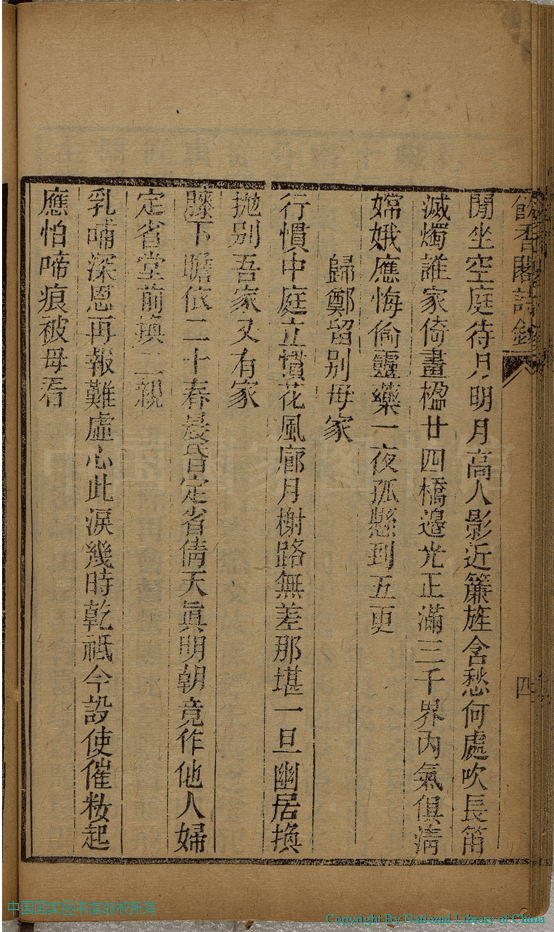 飲香閣詩鈔
四
閒坐空庭待月明月高人影近簾旌含愁何處吹長笛
滅燭誰家倚畫楹廿四橋邊光正滿三千界內氣俱淸
嫦娥應悔偷靈藥一夜孤懸到五更
歸鄭留别母家
行慣中庭立慣花風廊月榭路無差那堪一旦幽居換
拋别吾家又有家
膝下瞻依二十春晨昏定省倩天眞明朝竟作他人婦
定省堂前換二親
乳哺深恩再報難虛心此淚幾時乾祗今設使催妝起
應怕啼痕被母看
Copyright By National Library of China